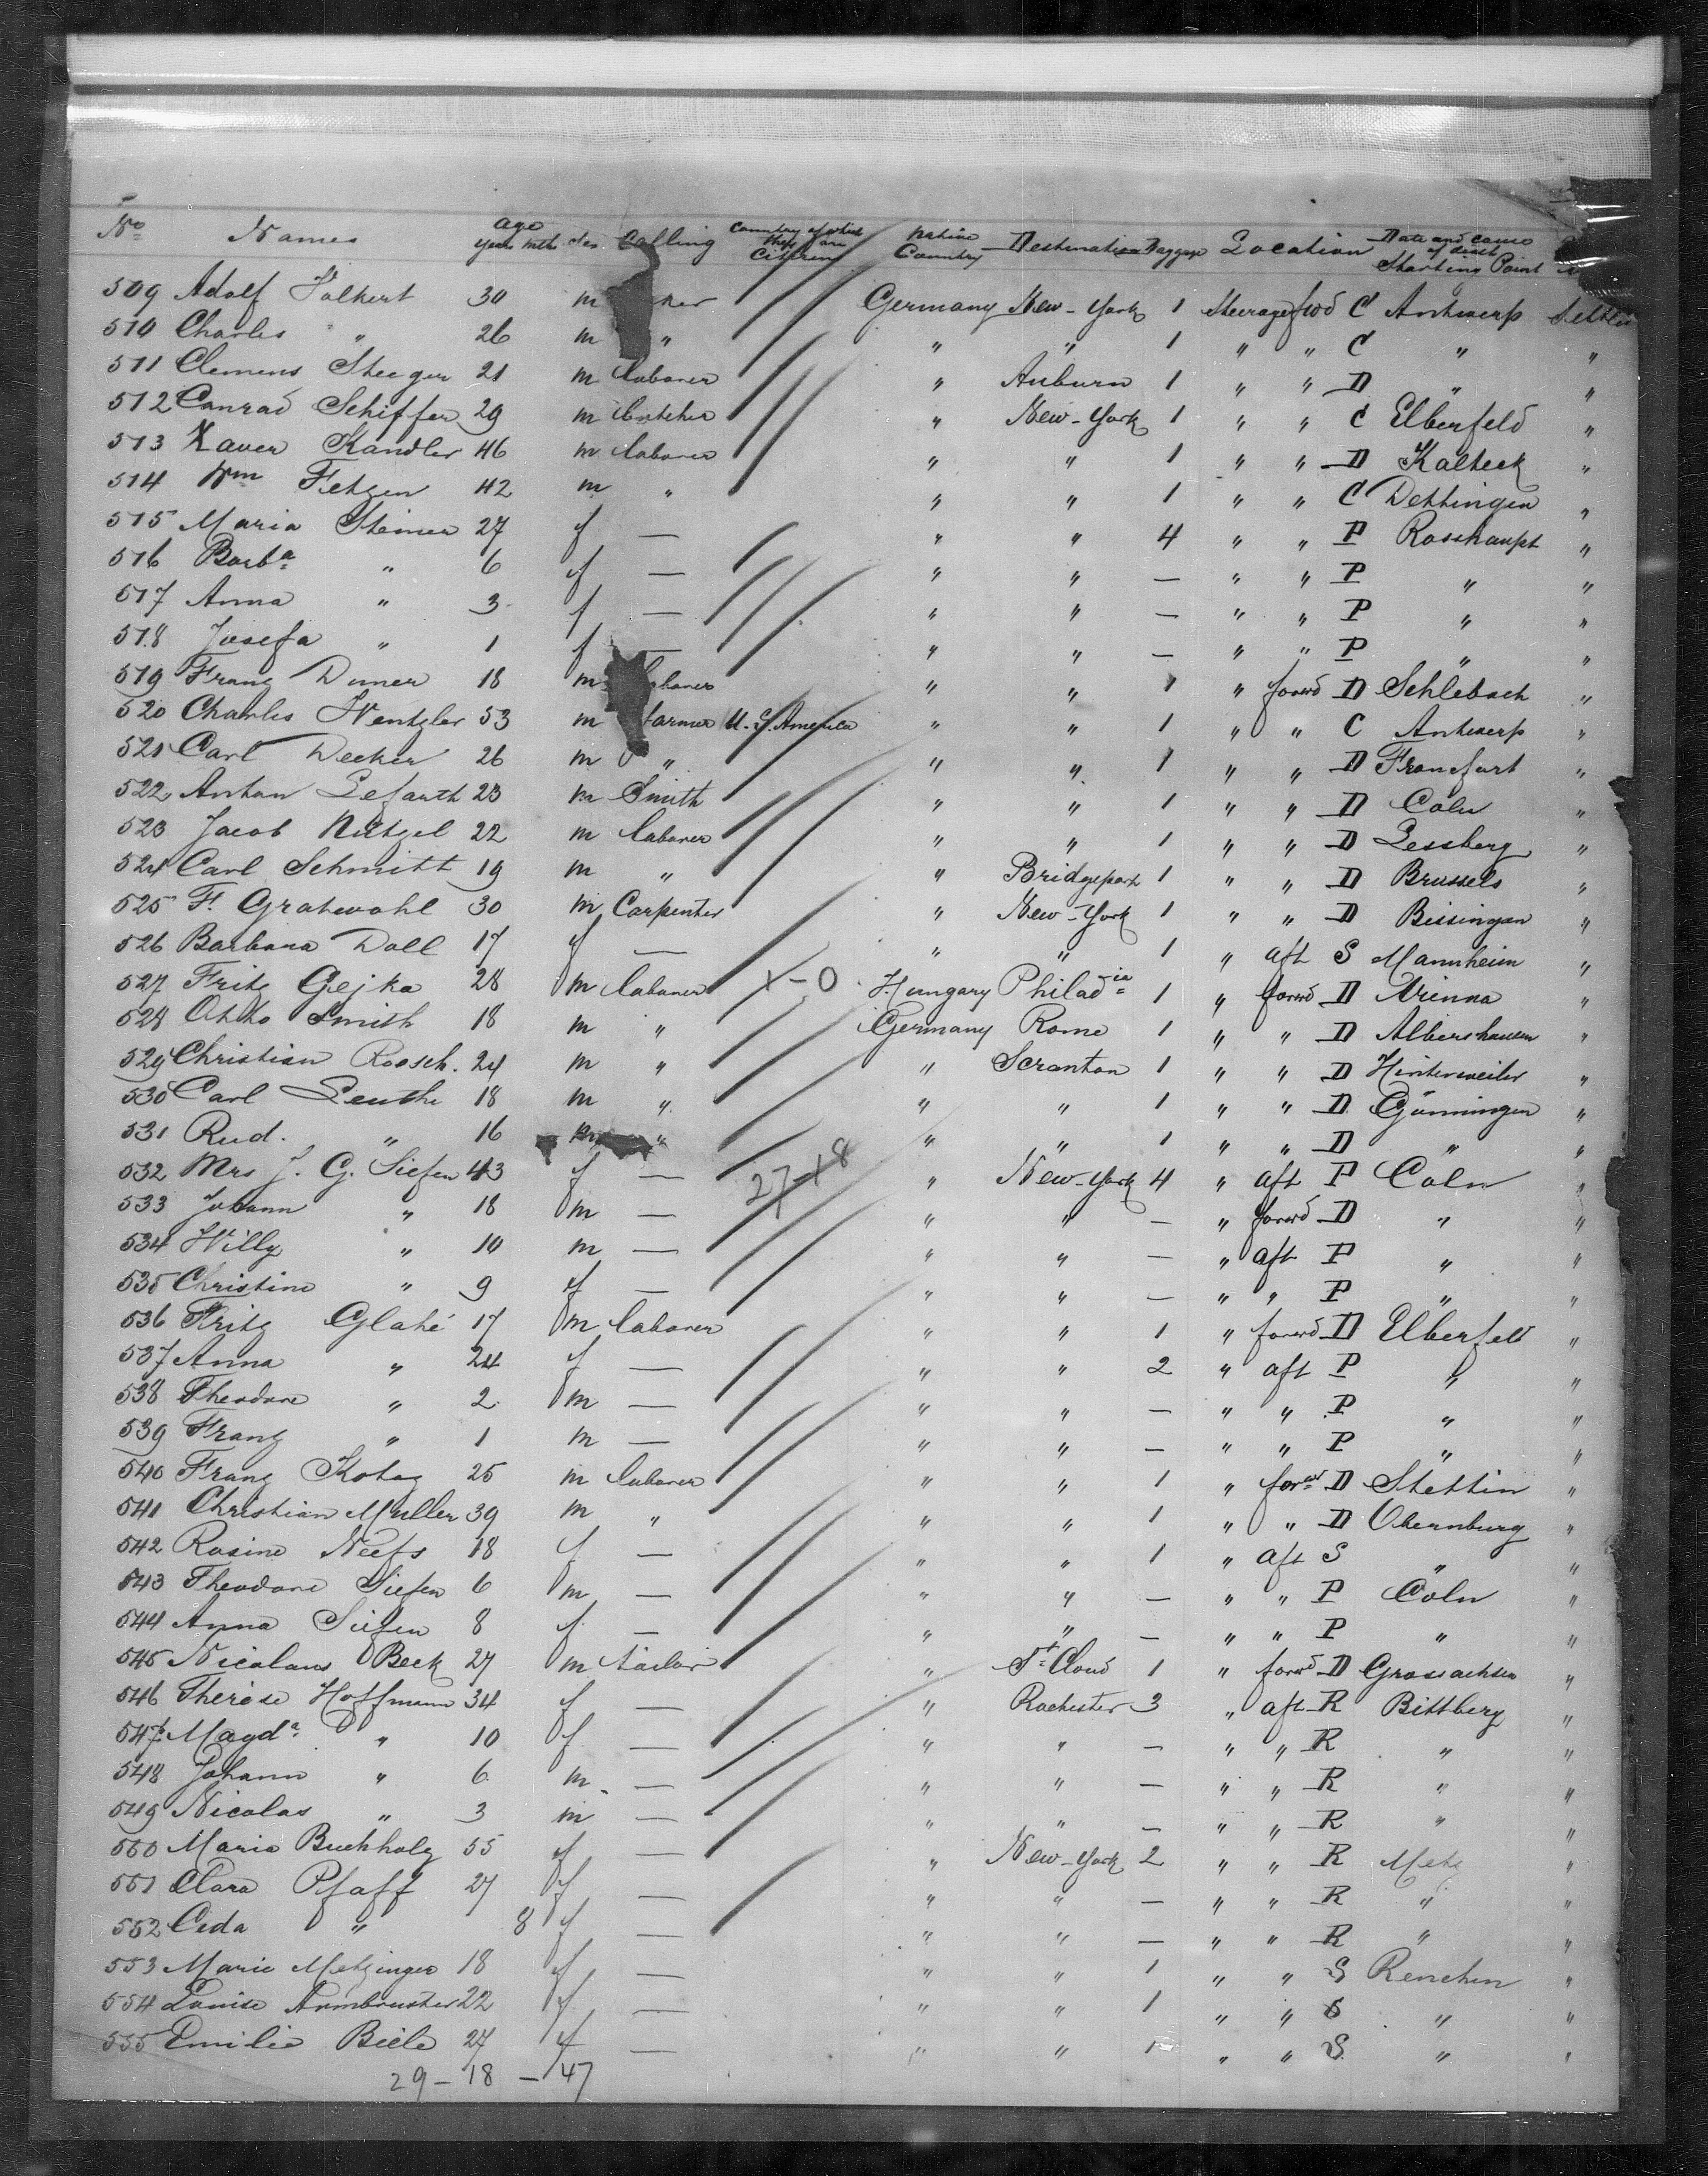 No Names age years mths sex Calling Country of which they are Citizen native Country Destination Baggage Location Date and cause of death Starting Point
509 Adolf Folkert 30 m Germany New-York 1 Steerage fwd C Antwerp
510 Charles " 26 m " " " 1 " " C " "
511 Clemens Steeger 21 m laborer " Auburn 1 " " D " "
512 Conrad Schiffer 29 m butcher " New-York 1 " " C Elberfeld "
513 Xaver Kandler 46 m laborer " " 1 " " D Kalteck "
514 Wm Fetzen 42 m " " " 1 " " C Dettingen "
515 Maria Steiner 27 f — " " 4 " " P Rosshaupt "
516 Barba " 6 f — " " — " " P " "
517 Anna " 3 f — " " — " " P " "
518 Josefa " 1 f — " " — " " P " "
519 Franz Dumer 18 m laborer " " 1 " forwd D Schlebach "
520 Charles Wentzler 53 m farmer U.S. America " " 1 " " C Antwerp "
521 Carl Decker 26 m " " " 1 " " D Francfurt "
522 Anton Lefarth 23 m Smith " " 1 " " D Coln "
523 Jacob Nützel 22 m laborer " " 1 " " D Lessberg "
524 Carl Schmitt 19 m " " Bridgeport 1 " " D Brussels "
525 F. Gratwohl 30 m Carpenter " New-York 1 " " D Bissingen "
526 Barbara Doll 17 f — " " 1 " aft S Mannheim "
527 Fritz Gejka 28 m laborer X-O Hungary Philadia 1 " forwd D Vienna "
528 Otto Smith 18 m " Germany Rome 1 " " D Albershausen "
529 Christian Roosch. 24 m " " Scranton 1 " " D Hinterweiler "
530 Carl Leuthe 18 m " " " 1 " " D Gönningen "
531 Rud. " 16 m " " " 1 " " D " "
532 Mrs J. G. Siefen 43 f — 27-18 " New-York 4 " aft P Coln "
533 Johann " 18 m — " " — " forwd D " "
534 Willy " 10 m — " " — " aft P " "
535 Christine " 9 f — " " — " " P " "
536 Fritz Glahé 17 m laborer " " 1 " forwd D Elberfeld "
537 Anna " 24 f — " " 2 " aft P " "
538 Theodore " 2 m — " " — " " P " "
539 Franz " 1 m — " " — " " P " "
540 Franz Kotaz 25 m laborer " " 1 " forwd D Stettin "
541 Christian Muller 39 m " " " 1 " " D Obernburg "
542 Rosine Neefs 18 f — " " 1 " aft S " "
543 Theodore Siefen 6 m — " " — " " P Coln "
544 Anna Siefen 8 f — " " — " " P " "
545 Nicolaus Beck 27 m tailor " St Cloud 1 " forwd D Grossachsen "
546 Therése Hoffmann 34 f — " Rochester 3 " aft R Bittberg "
547 Magda " 10 f — " " — " " R " "
548 Johann " 6 m — " " — " " R " "
549 Nicolas " 3 m — " " — " " R " "
550 Marie Buchholz 55 f — " New-York 2 " " R Metz "
551 Clara Pfaff 27 f — " " — " " R " "
552 Ceda " 8 f — " " — " " R " "
553 Marie Metzinger 18 f — " " 1 " " S Renchen "
554 Louise Armbruster 22 f — " " 1 " " S " "
555 Emilie Biele 27 f — " " 1 " " S " "
29-18-47